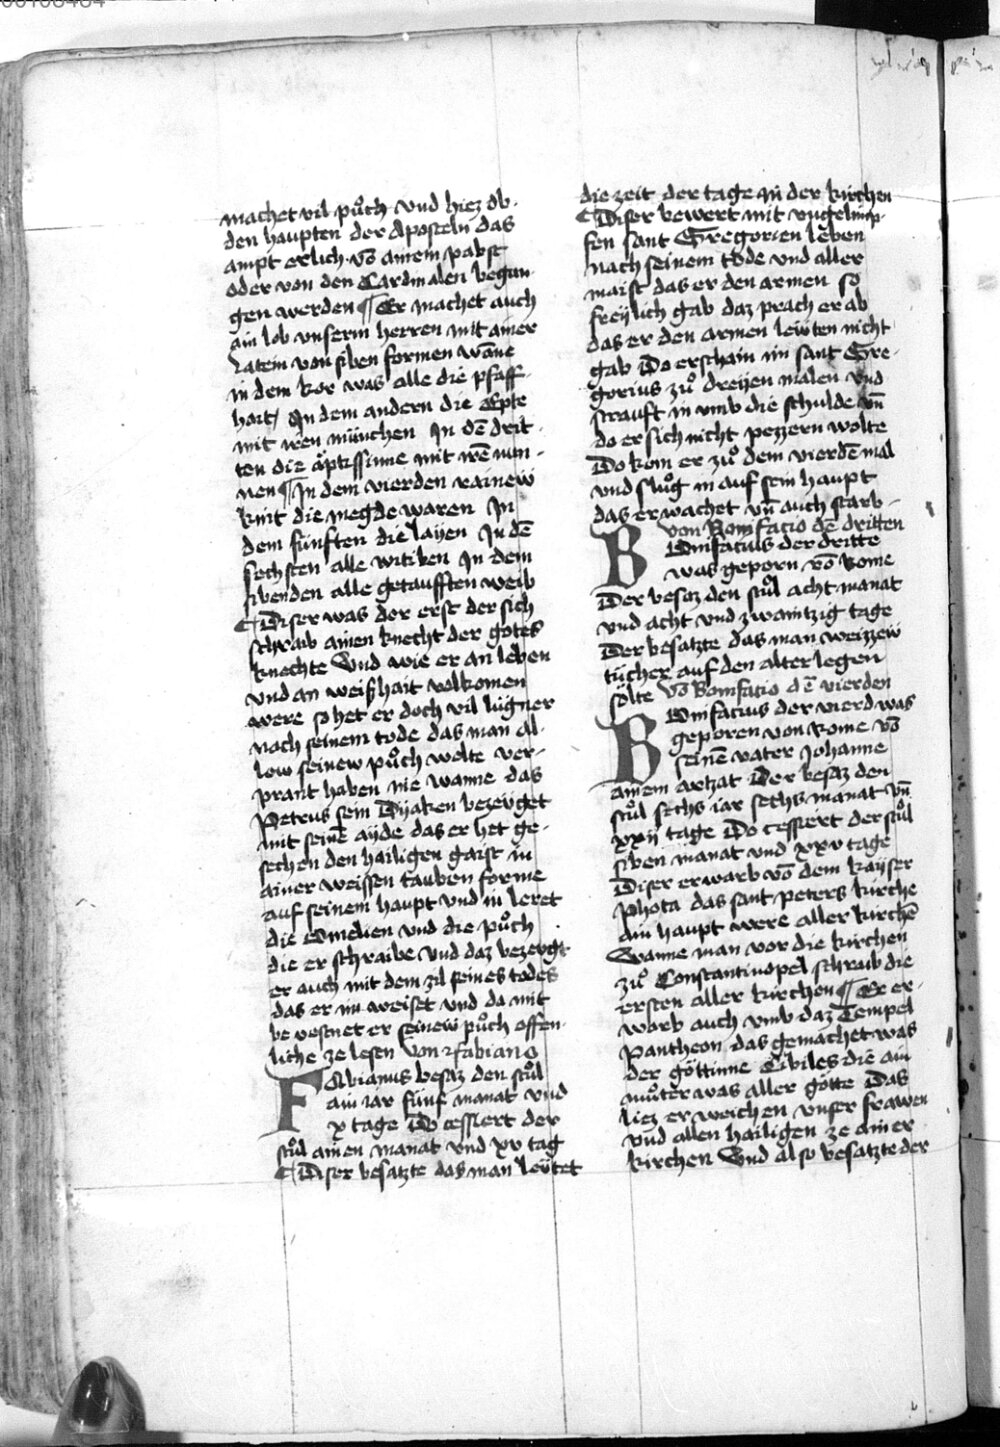 machet vil půch vnd hiez ob-
den haupten der Aposteln das
ampt erlich vō ainem pabst
oder von den Cardinalen began-
gen werden ¶ Er machet auch
ain lob vnserm herren mit ainer
latein von siben formen wāne
in dem kor was alle die pfaff-
hait / In dem andern die Epte
mit iren münchen In dē drit-
ten die äptissinne mit irē nun-
nen ¶ In dem vierden rainew
kint die megde waren In
dem fünften die layen In dē
sechsten alle witiben In dem
sibenden alle getaufften weib
¶ Diser was der erst der sich
schraib ainen knecht der gotes
knechte Vnd wie er an leben
vnd an weißhait volkomen
were so het er doch vil lügner
nach seinem tode das man al-
low seinew půch wolte ver-
prant haben nie wanne das
Petrus sein Dyaken bezeüget
mit seinē ayde das er het ge-
sechen den hailigen gaist in
ainer weissen tauben forme
auf seinem haupt vnd in leret
die Omelien vnd die půch
die er schraibe vnd daz bezevgt
er auch mit dem zil seines todes
das er im weiset vnd da mit
be vestnet er seinew půch offen-
liche ze lesen Von fabiano
FAbianus besaz den stůl
ain iar fünf manat vnd
x tage Do cessiert der
stůl ainen manat vnd xv tag
¶ Diser besatzte das man leütet
die zeit der tage in der kirchen
¶ Diser bewert mit vngelimp-
fen sant Gregorien leben
nach seinem tode vnd aller
maist das er den armen so
freylich gab daz prach er ab
das er den armen lewten nicht
gab Do erschain im sant Gre-
gorius zů dreyen malen vnd
strauft in vmb die schulde vn̄
do er sich nicht pezzern wolte
Do kom er zů dem vierdē mal
vnd slůg in auf sein haupt
das er wachet vn̄ auch starb-
von Bonifacio dē dritten
BOnifacius der dritte
was geporn vō Rome
Der besaz den stůl acht manat
vnd acht vnd zwaintzig tage
Der besatzte das man weizzew
tücher auf den alter legen
sölte Vō Bonifacio dē vierden
BOnifacius der vierd was
geporen von Rome vō
seinē vater Johanne
ainem artzat Der besaz den
stůl sechs iar sechs manat vn̄
xxij tage Do cessiert der stůl
siben manat vnd xxv tage
Diser erwarb vō dem kayser
Phota das sant peters kirche
ain haupt were aller kirchē
Wanne man vor die kirchen
zů Constantinopel schraib die
ersten aller kirchen ¶ Er er-
warb auch vmb daz Tempel
Pantheon das gemachet was
der göttinne Cibiles die ain
můter was aller götte Das
liez er weichen vnser frawen
vnd allen hailigen ze ainer
kirchen Vnd also besatzte der